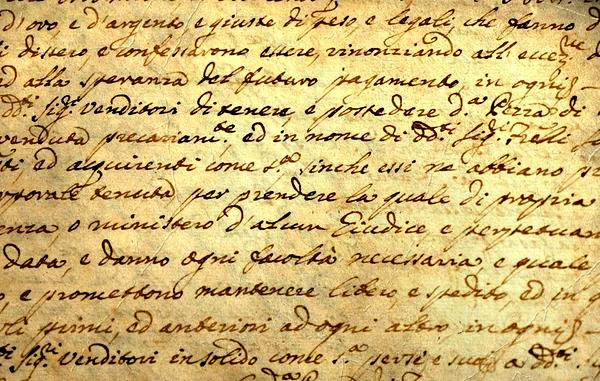 d'oro, e d'argento e giuste di peso, e legali, che fanno d
i dissero, e confessarono essere, rinonziando all'eccez.ne
ed alla speranza del futuro pagamento, in ogni
dd.ti Sig.ri Venditori di tenere, e possedere d.a Pezza di
venduta precariam.te, ed in nome di dd.ti Sig.ri Frelli
ti, ed acquirenti come s.a sinche essi ne abbiano pr
orporale tenuta per prendere la quale di propria
enza, o ministero d'alcun Giudice, e perpetuam
data, e danno ogni facoltà necessaria, e quale
o, e promettono mantenere libero, e spedito, ed in q
oli primi, ed anteriori ad ogni altro in ogni
ti Sig.ri Venditori in solido come s.a per se e suoi a dd.ti